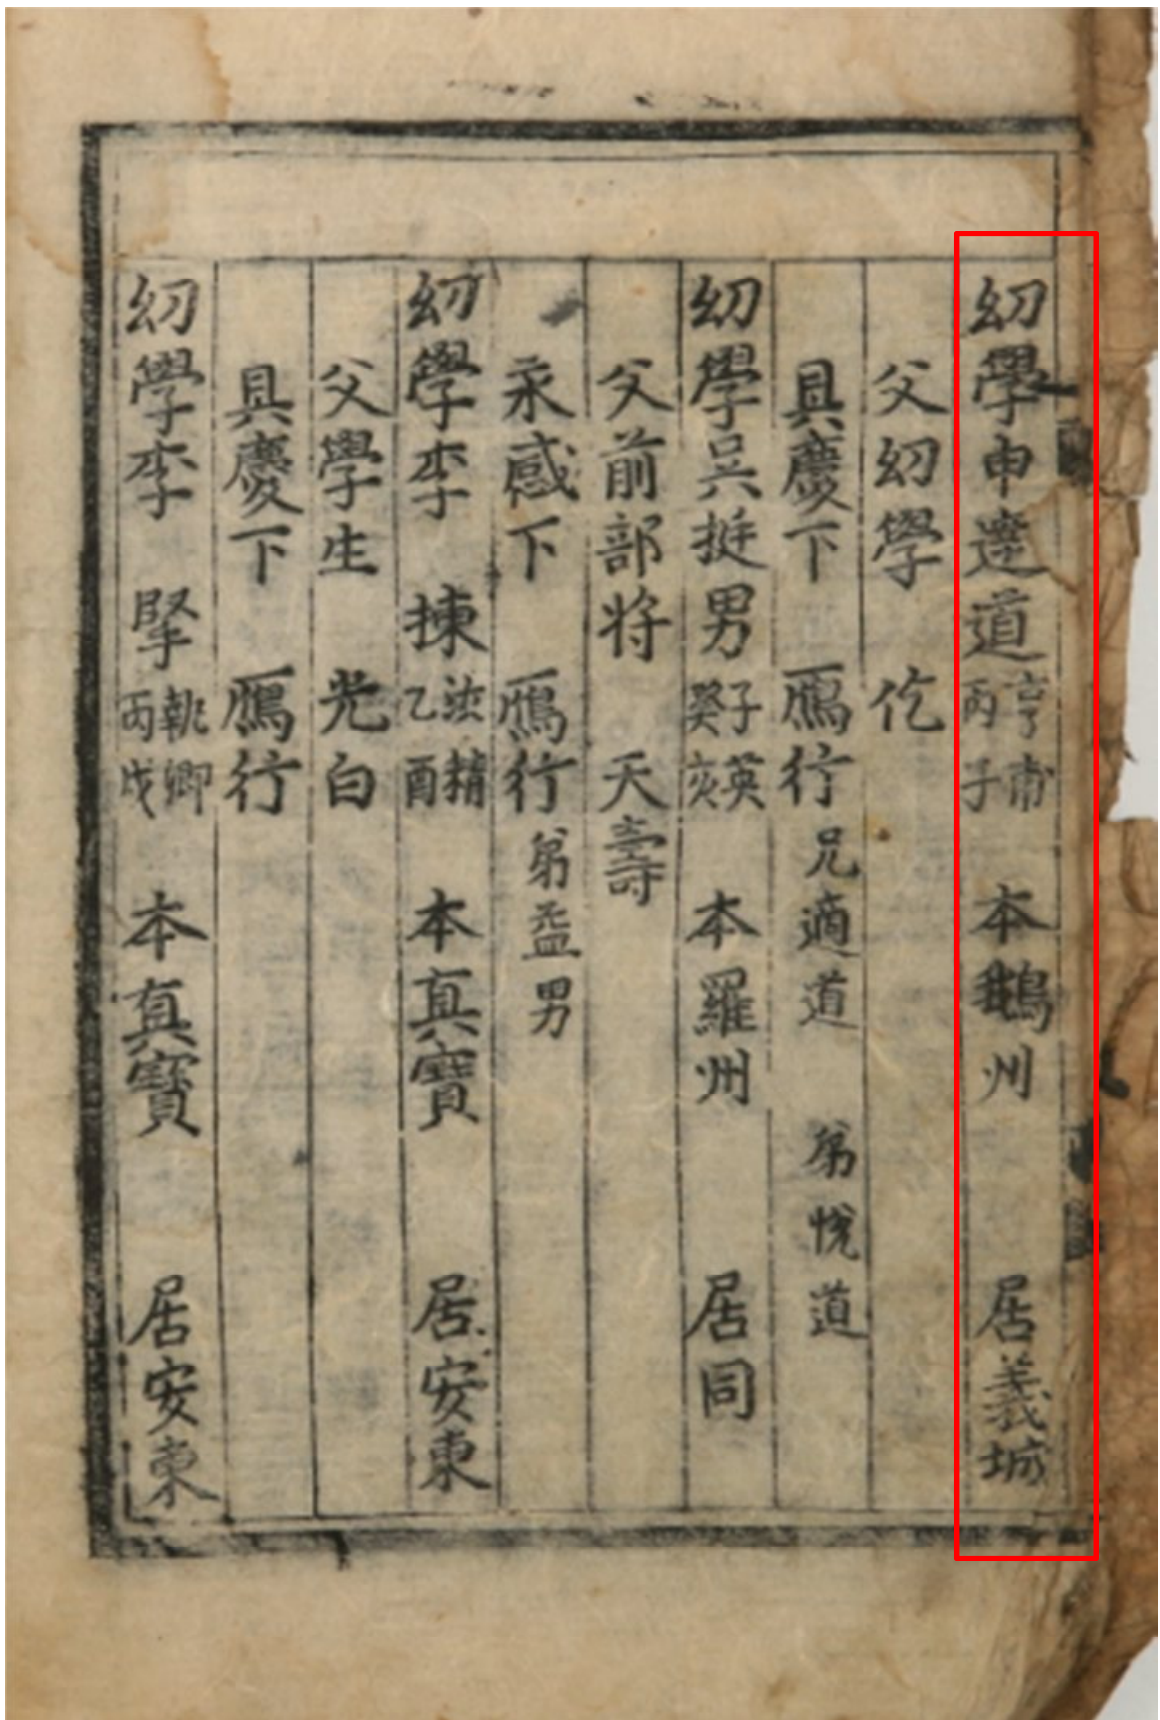 幼學申達道 亨甫 丙子 本鵝州 居義城
父幼學 仡
具慶下 鴈行 兄適道 弟悅道
幼學吳挺男 子英 癸亥 本羅州 居同
父前部将 天壽
永感下 鴈行 弟益男
幼學李 揀 精 乙酉 本真寶 居安東
父學生 光白
具慶下 鴈行
幼學李 掔 執卿 丙戌 本真寶 居安東